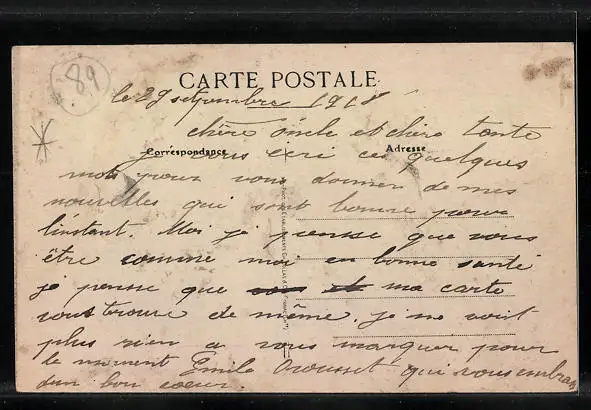 89
CARTE POSTALE
le 29 septembre 1918
chère oncle et chère tante
Correspondance
Adresse
je vous écri ces quelques
mots pour vous donner de mes
nouvelles qui sont bonne pour
l'instant. Moi je pense que vous
être comme moi en bonne santé
je pense que ma carte
vous trouve de même. je ne voit
plus rien a vous marquer pour
le moment Emile qui vous embras
d'un bon cœur.